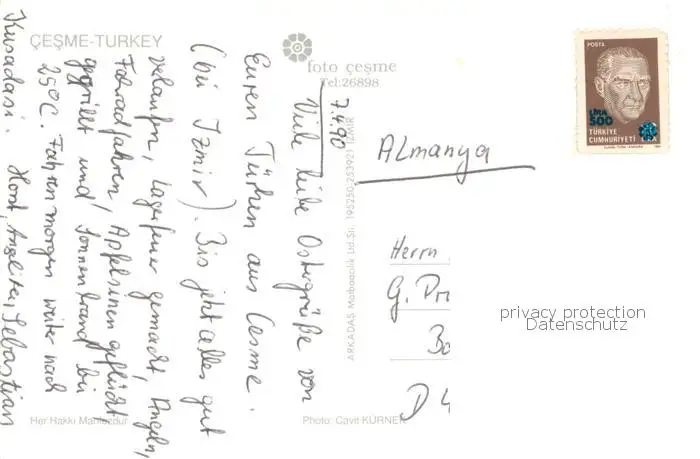 ÇEŞME-TURKEY
foto çeşme
Tel:26898
7.4.90
Viele liebe Ostergrüße von
Euren Türken aus Cesme.
(bei Izmir). Bis jetzt alles gut
verlaufen, Lagerfeuer gemacht, Angeln,
Fahrradfahren, Apfelsinen gepflückt,
gegrillt und Sonnenbrand bei
25°C. Fahren morgen weiter nach
Kusadasi. Horst, Angelika, Sebastian
Her Hakkı Mahfuzdur
Photo: Cavit KÜRNEK
ARKADAŞ Matbaacılık Ltd.Şti. 195260-253921 İZMİR
POSTA
LİRA
500
TÜRKİYE
CUMHURİYETİ
ALmanya
Herrn
G.
D 4
privacy protection
Datenschutz